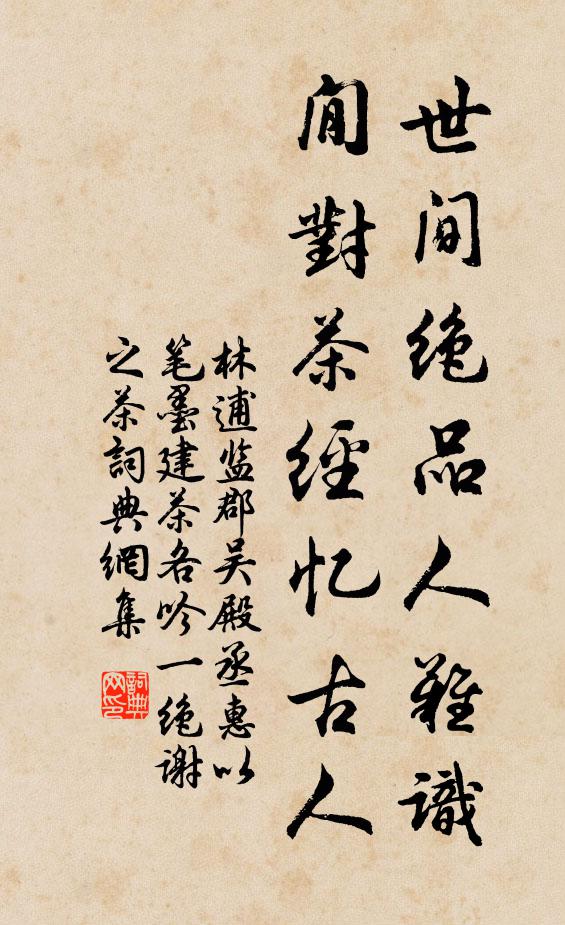 世间绝品人難識
閒對茶經忆古人
林逋监郡吴殿丞惠以
笔墨建茶各吟一绝谢
之茶詞典網集
詞典
网印